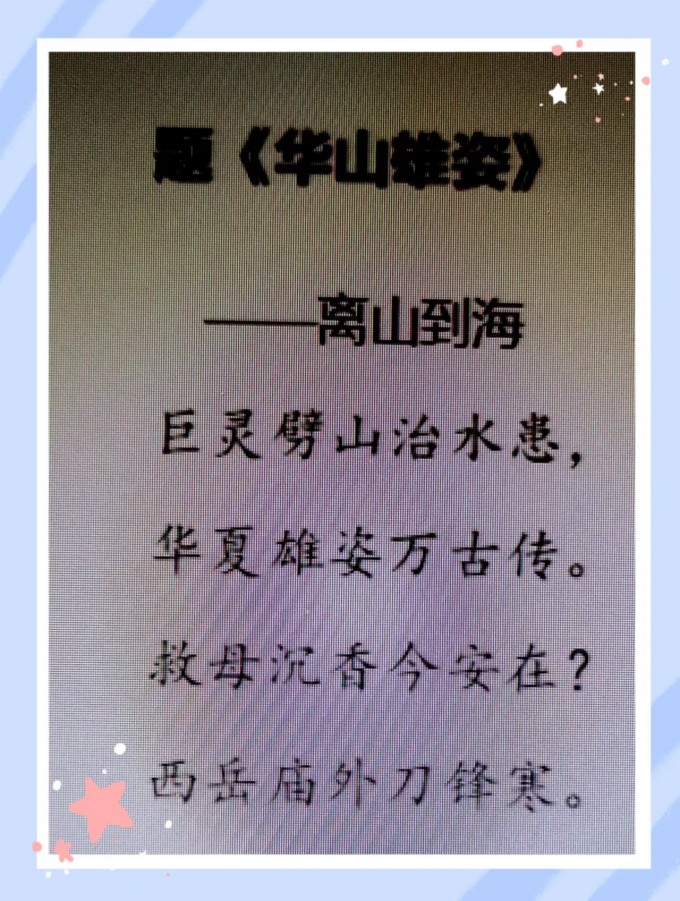 题《华山雄姿》
——离山到海
巨灵劈山治水患，
华夏雄姿万古传。
救母沉香今安在？
西岳庙外刀锋寒。